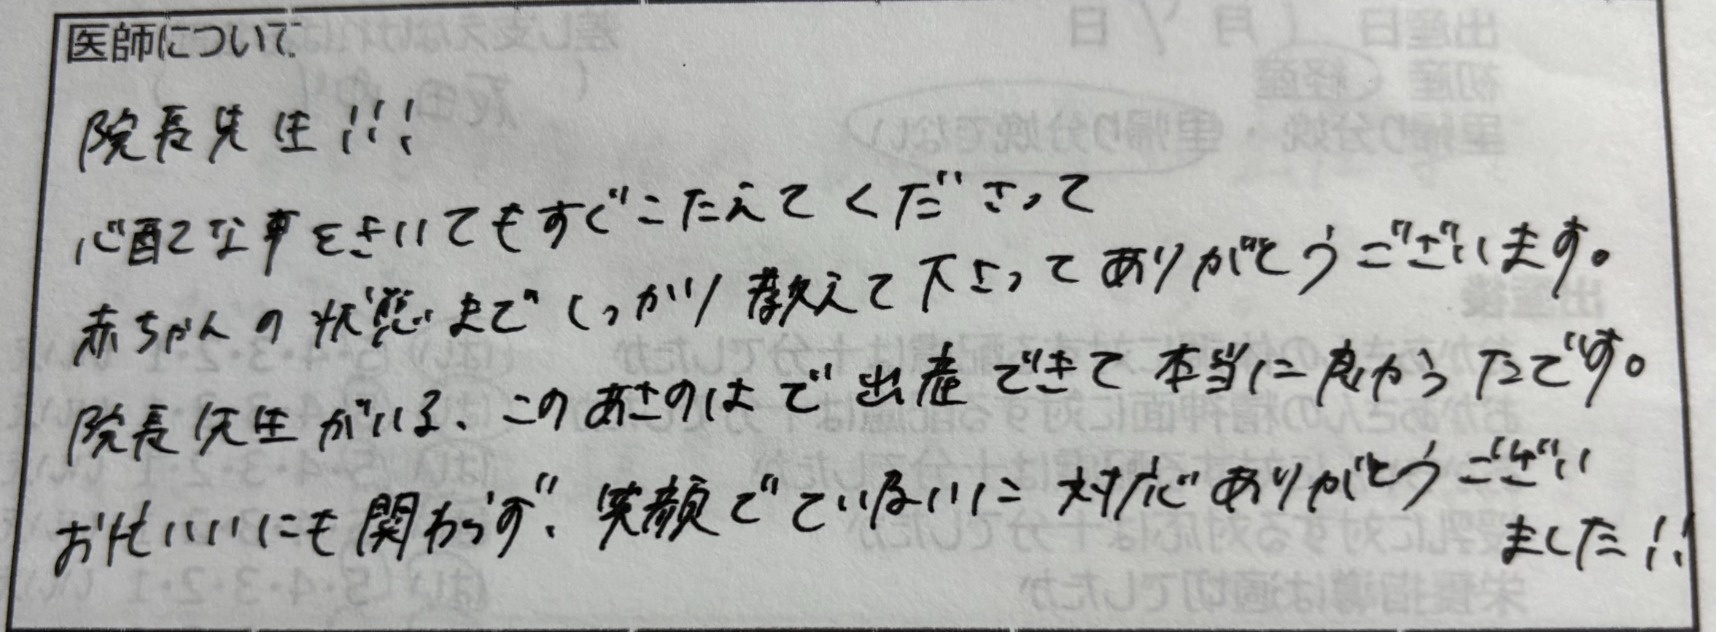 医師について
院長先生!!!
心配な事をきいてもすぐこたえてくださって
赤ちゃんの状態までしっかり教えて下さってありがとうございます。
院長先生がいる、このあさのはで出産できて本当に良かったです。
お忙いにも関わらず、笑顔でていねいに対応ありがとうござい
ました!!